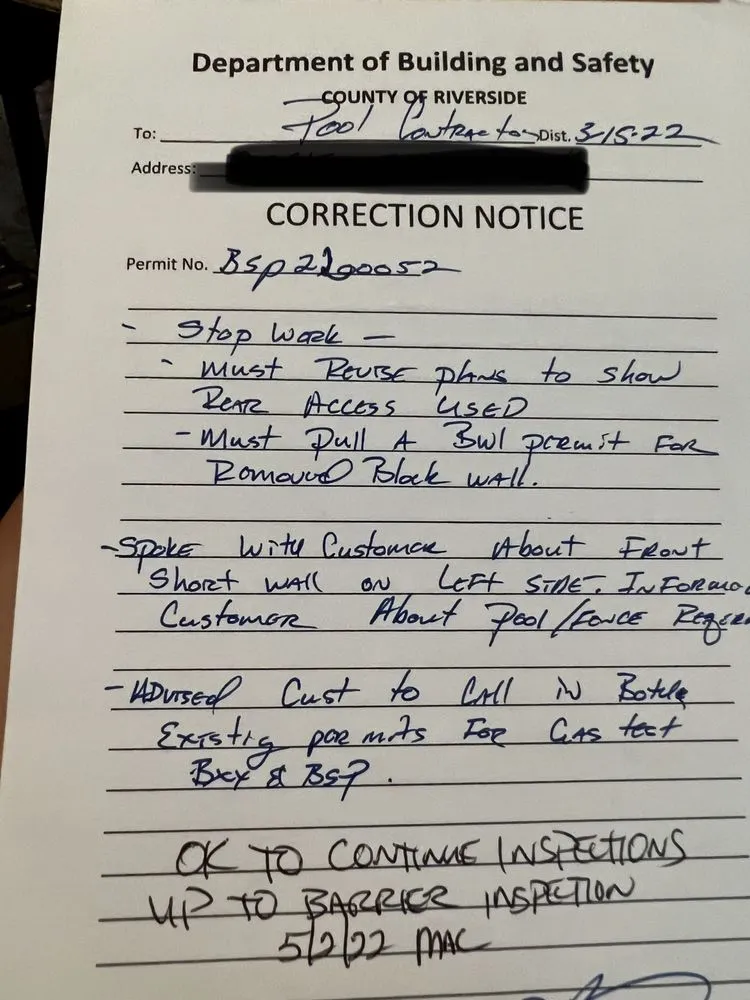 Department of Building and Safety
COUNTY OF RIVERSIDE
To: Pool Contractor Dist. 3-15-22
Address:
CORRECTION NOTICE
Permit No. BSP2200052
- Stop Work —
- Must Revise plans to show
Rear Access USED
- Must Pull A BWL permit For
Removed Block wall.
- Spoke With Customer About Front
Short wall on Left Side. Informed
Customer About Pool/Fence
- Advised Cust to Call in Both
Existig permits For Gas test
Bxx & BSP.
OK TO CONTINUE INSPECTIONS
UP TO BARRIER INSPECTION
5/2/22 MAC